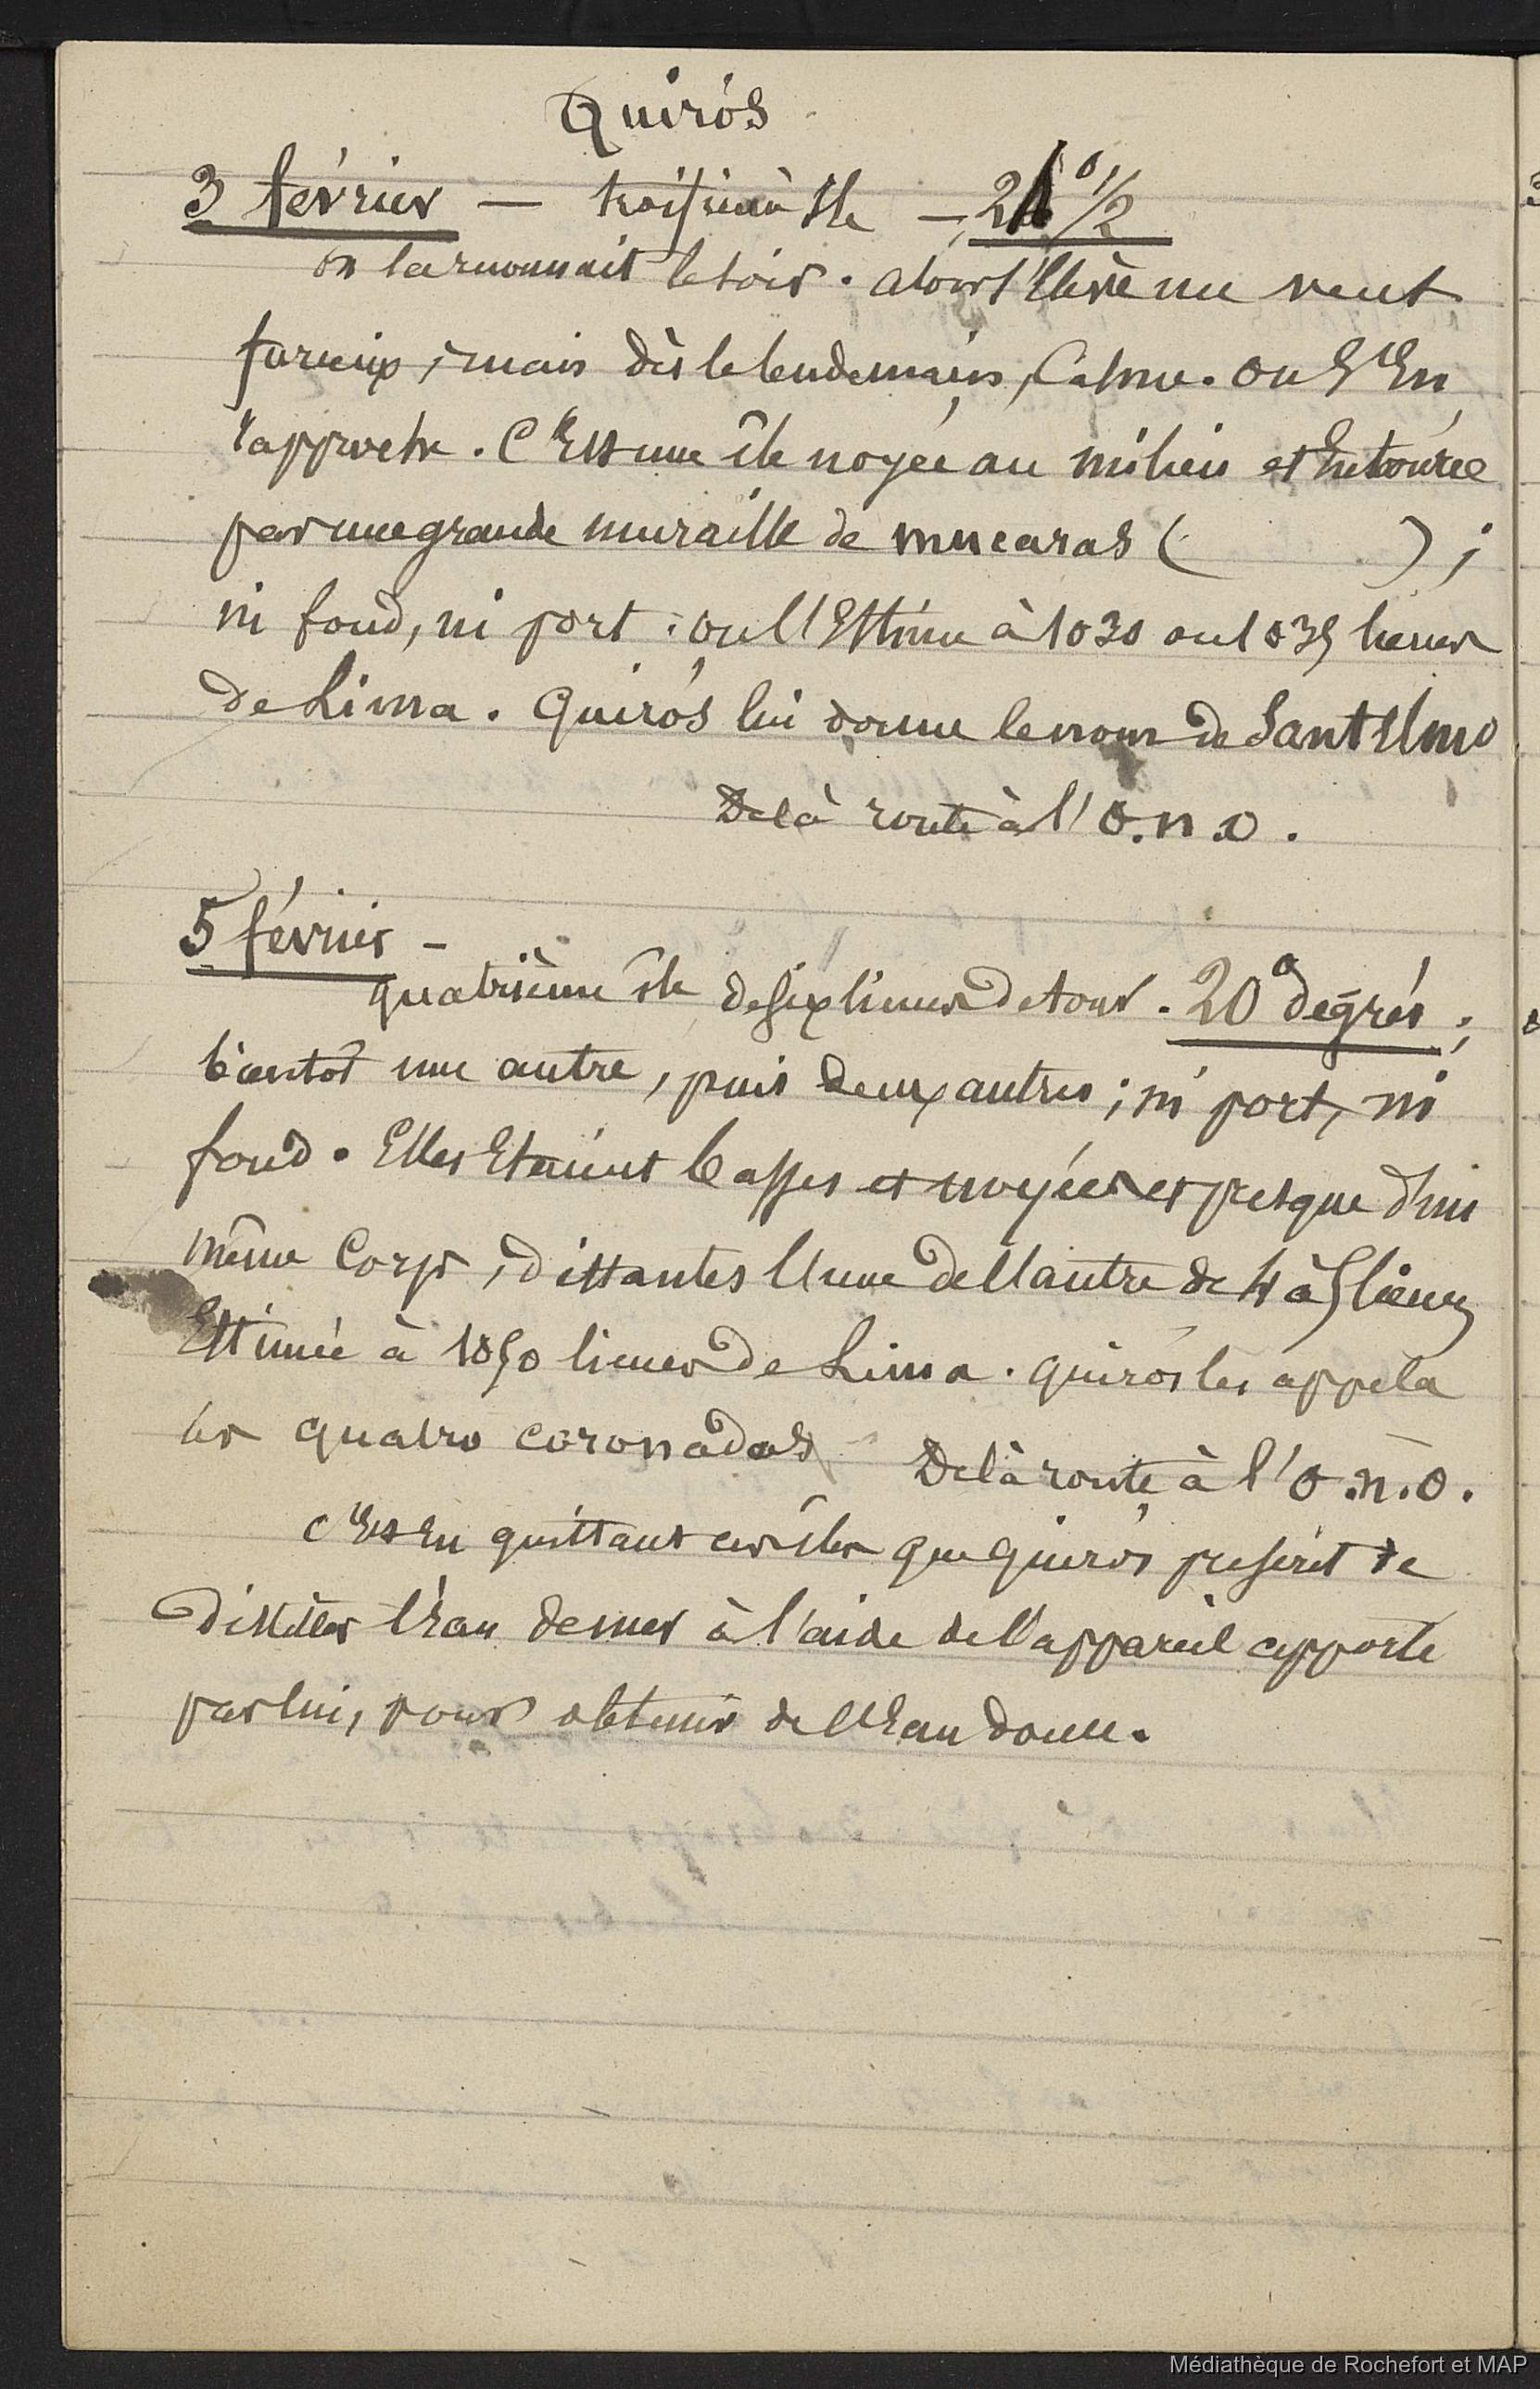 Quirós
3 février — troisième île — 21°1/2
on la reconnait le soir. alors s'élève un vent
furieux, mais dès le lendemain, calme. on s'en
rapproche. C'est une île noyée au milieu et entourée
par une grande muraille de mucaras ( );
ni fond, ni port. on l'estime à 1030 ou 1035 lieues
de Lima. Quirós lui donne le nom de Santelmo
De là route à l'O.n.O.
5 février -
quatrième île de six lieues de tour. 20° degrés;
bientôt une autre, puis deux autres; ni port, ni
fond. Elles étaient basses et noyées et presque d'un
même corps, distantes l'une de l'autre de 4 à 5 lieues
Estimée à 1050 lieues de Lima. Quirós les appela
les quatro coronadas De là route à l'O.n.O.
C'est en quittant ces îles que Quirós prescrit de
distiller l'eau de mer à l'aide de l'appareil apporté
par lui, pour obtenir de l'eau douce.
Médiathèque de Rochefort et MAP